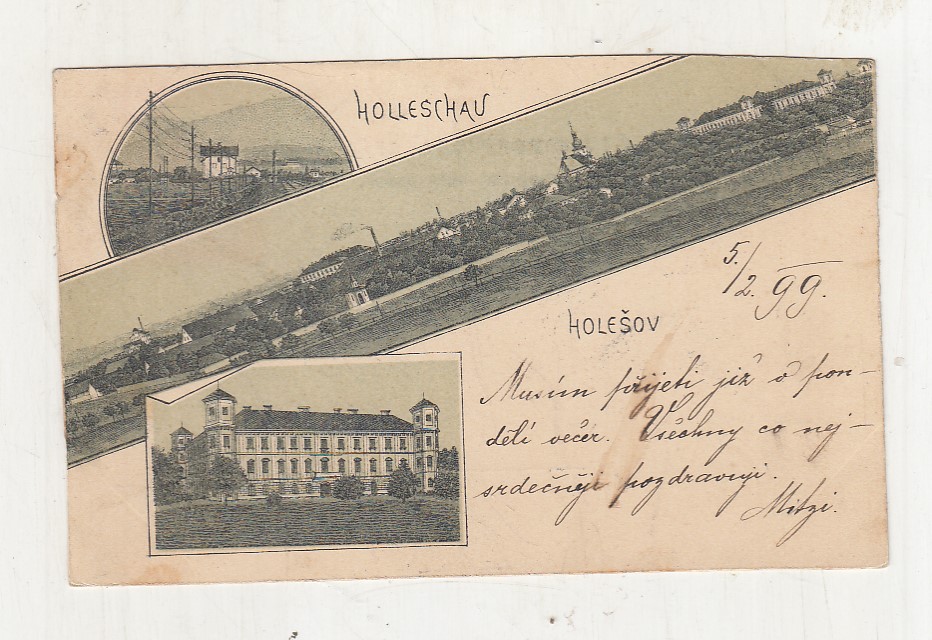 HOLLESCHAU
5./2. 99.
HOLEŠOV
Musím přijeti již v pon-
dělí večer. Všechny co nej-
srdečněji pozdravuji.
Mitzi.